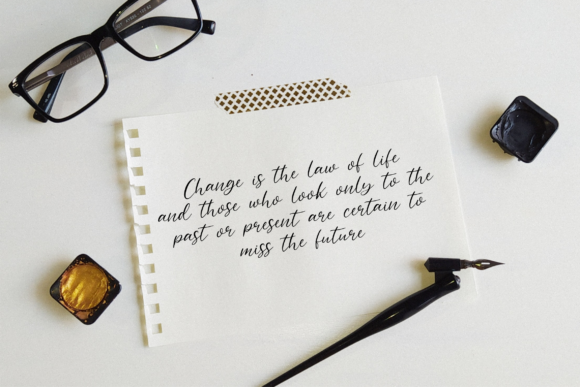 Change is the law of life
and those who look only to the
past or present are certain to
miss the future